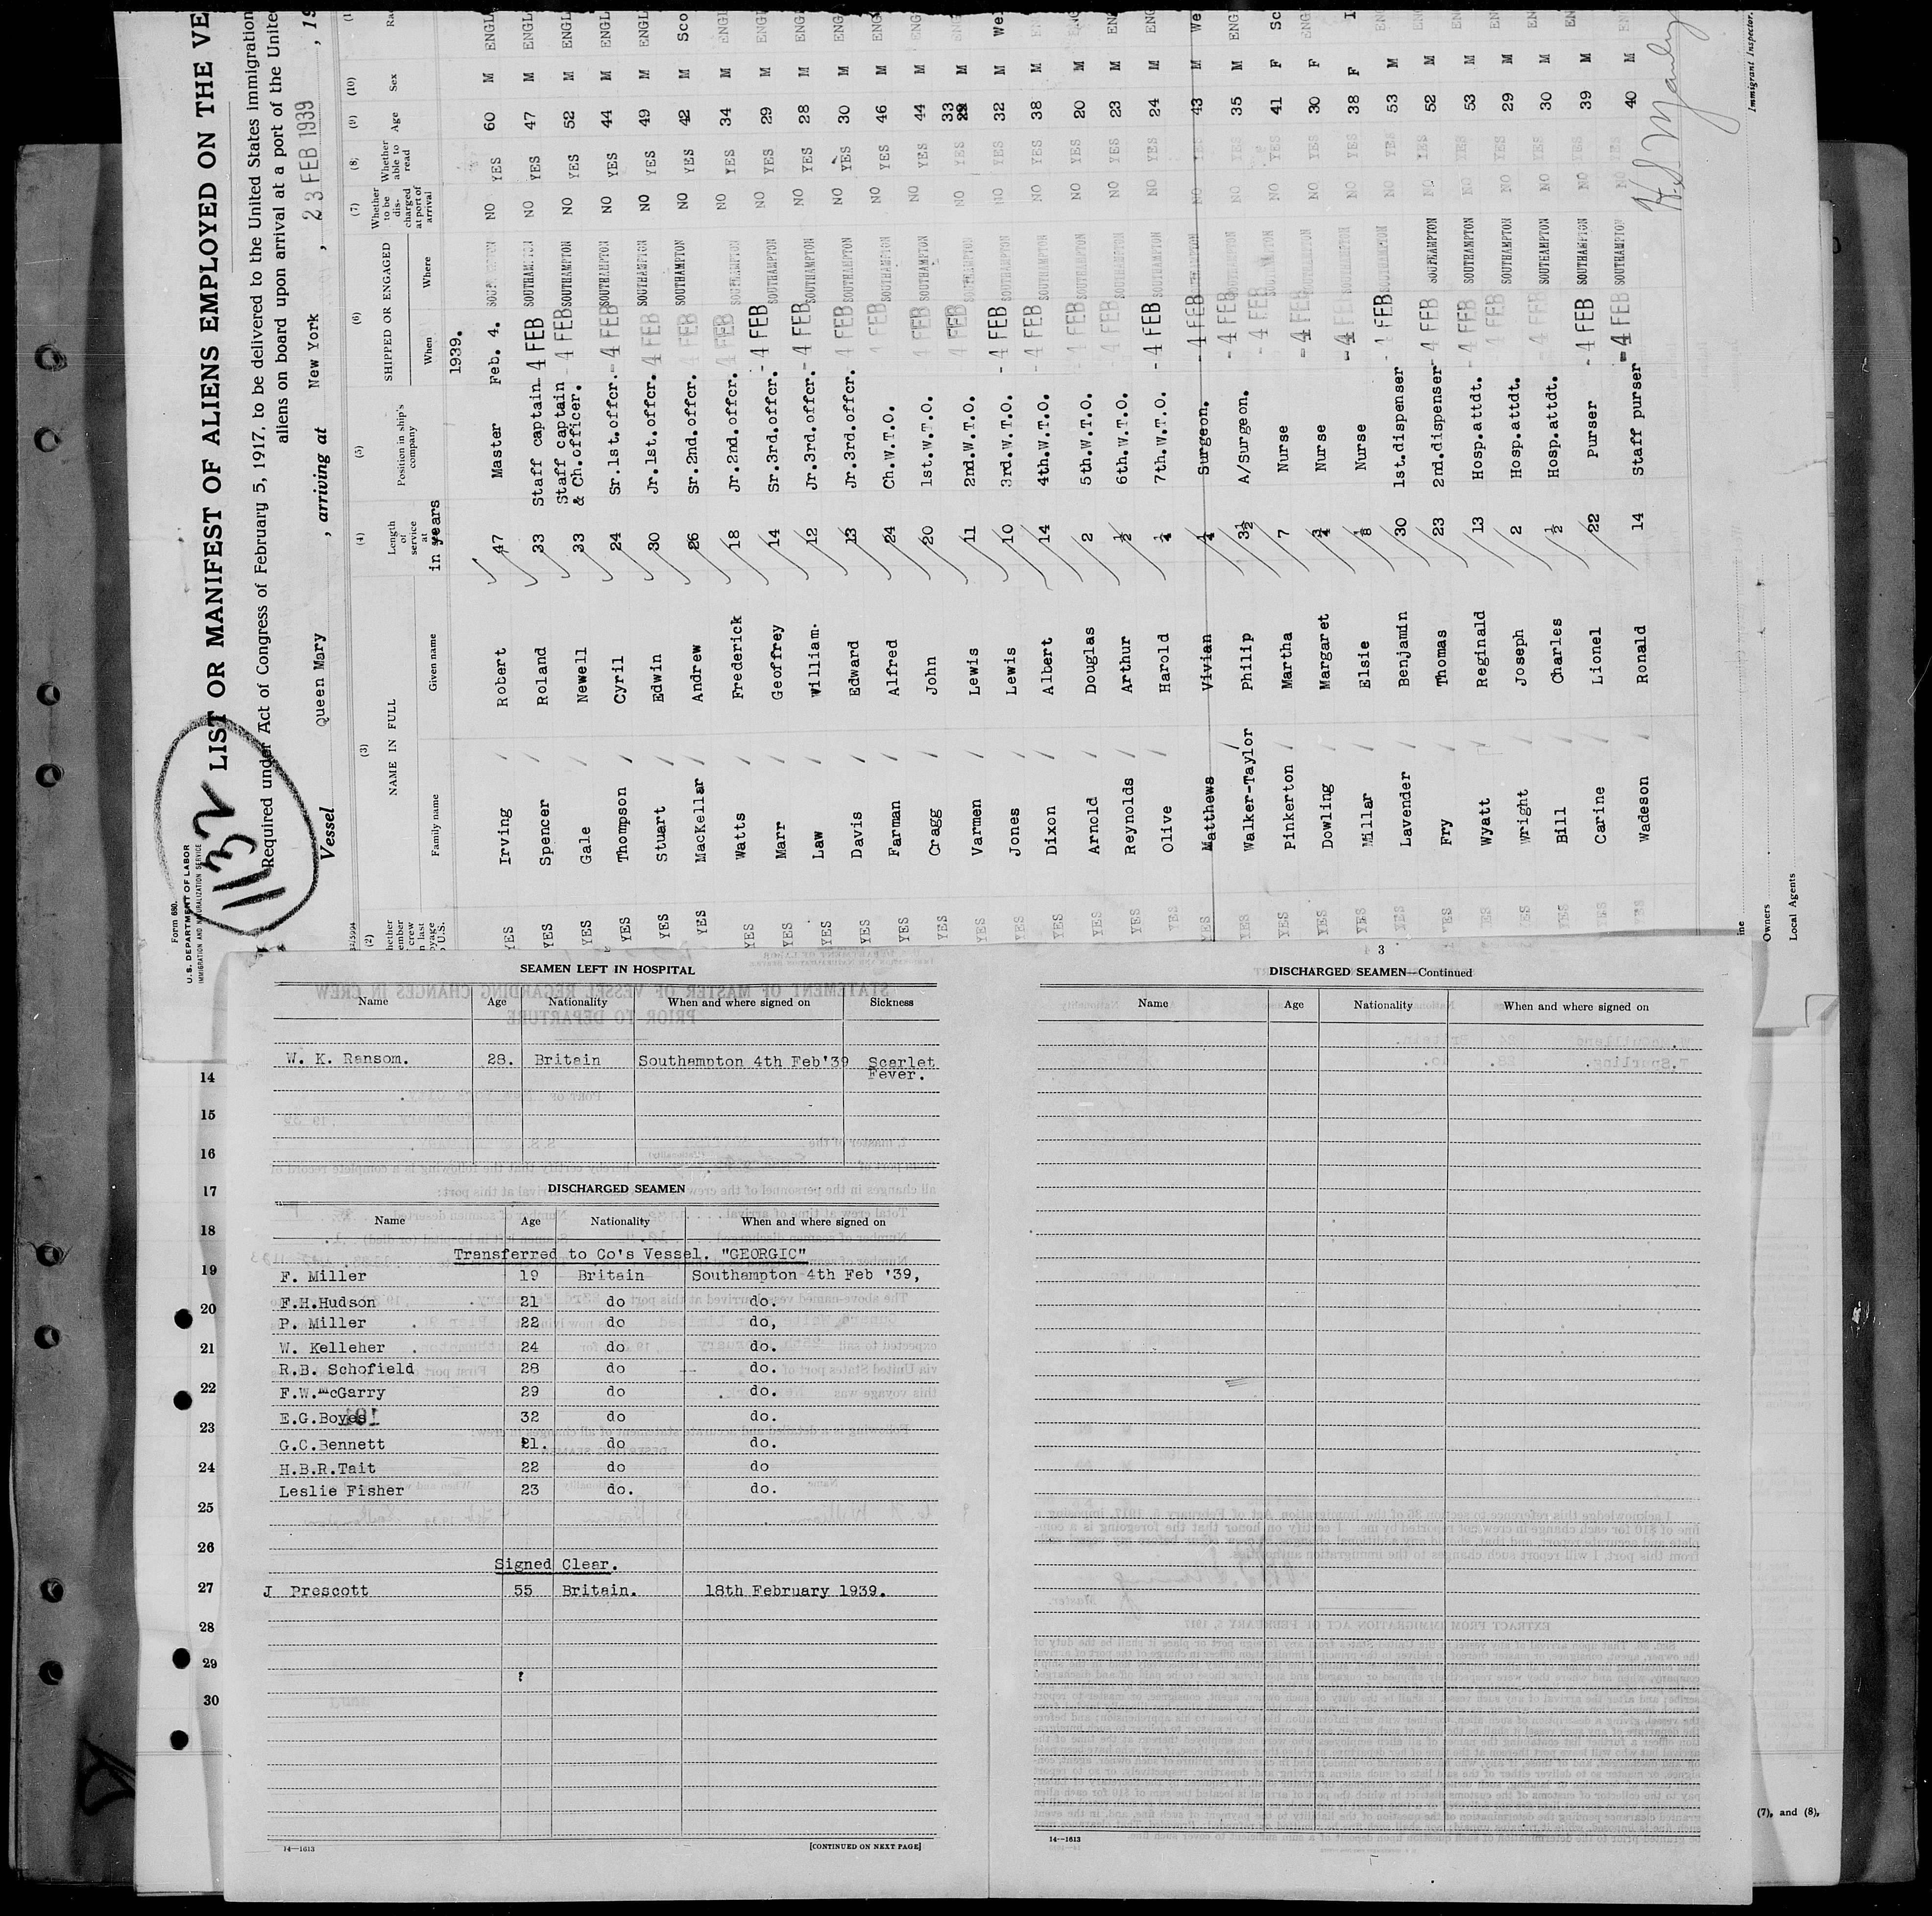 1132
Form 680.
U.S. DEPARTMENT OF LABOR
IMMIGRATION AND NATURALIZATION SERVICE
LIST OR MANIFEST OF ALIENS EMPLOYED ON THE VE
Required under Act of Congress of February 5, 1917, to be delivered to the United States immigration
aliens on board upon arrival at a port of the Unite
Vessel Queen Mary , arriving at New York , 23 FEB 1939 , 19
(2) (3) (4) (5) (6) (7) (8) (9) (10)
NAME IN FULL
Family name Given name
Length of service at
in years
Position in ship's company
SHIPPED OR ENGAGED
When Where
Whether to be discharged at port of arrival
Whether able to read
Age Sex
1939.
YES Irving Robert 47 Master Feb. 4. NO YES 60 M ENGL
YES Spencer Roland 33 Staff captain - 4 FEB SOUTHAMPTON NO YES 47 M ENGL
YES Gale Newell 33 Staff captain & Ch.officer. - 4 FEB SOUTHAMPTON NO YES 52 M ENGL
YES Thompson Cyril 24 Sr.1st.offcr. - 4 FEB SOUTHAMPTON NO YES 44 M ENGL
YES Stuart Edwin 30 Jr.1st.offcr. 4 FEB SOUTHAMPTON NO YES 49 M ENGL
YES MacKellar Andrew 26 Sr.2nd.offcr. 4 FEB SOUTHAMPTON NO YES 42 M Sco
YES Watts Frederick 18 Jr.2nd.offcr. 4 FEB SOUTHAMPTON NO YES 34 M ENGL
YES Marr Geoffrey 14 Sr.3rd.offcr. - 4 FEB SOUTHAMPTON NO YES 29 M ENGL
YES Law William. 12 Jr.3rd.offcr. - 4 FEB SOUTHAMPTON NO YES 28 M ENGL
YES Davis Edward 13 Jr.3rd.offcr. 4 FEB SOUTHAMPTON NO YES 30 M ENG
YES Farman Alfred 24 Ch.W.T.O. 4 FEB SOUTHAMPTON NO YES 46 M ENG
YES Cragg John 20 1st.W.T.O. 4 FEB SOUTHAMPTON NO YES 44 M ENG
YES Varmen Lewis 11 2nd.W.T.O. 4 FEB SOUTHAMPTON NO YES 33 M ENG
YES Jones Lewis 10 3rd.W.T.O. - 4 FEB SOUTHAMPTON NO YES 32 M Wel
YES Dixon Albert 14 4th.W.T.O. - 4 FEB SOUTHAMPTON NO YES 38 M EN
YES Arnold Douglas 2 5th.W.T.O. 4 FEB SOUTHAMPTON NO YES 20 M ENG
YES Reynolds Arthur ½ 6th.W.T.O. - 4 FEB SOUTHAMPTON NO YES 23 M EN
YES Olive Harold 7th.W.T.O. - 4 FEB SOUTHAMPTON NO YES 24 M ENG
YES Matthews Vivian Surgeon. - 4 FEB SOUTHAMPTON NO YES 43 M We
YES Walker-Taylor Philip 3½ A/Surgeon. - 4 FEB SOUTHAMPTON NO YES 35 M ENG
YES Pinkerton Martha 7 Nurse - 4 FEB SOUTHAMPTON NO YES 41 F Sc
YES Dowling Margaret ¾ Nurse - 4 FEB SOUTHAMPTON NO YES 30 F ENG
YES Millar Elsie ⅛ Nurse - 4 FEB SOUTHAMPTON NO YES 38 F I
YES Lavender Benjamin 30 1st.dispenser - 4 FEB SOUTHAMPTON NO YES 53 M ENG
YES Fry Thomas 23 2nd.dispenser - 4 FEB SOUTHAMPTON NO YES 52 M EN
YES Wyatt Reginald 13 Hosp.attdt. - 4 FEB SOUTHAMPTON NO YES 53 M EN
YES Wright Joseph 2 Hosp.attdt. 4 FEB SOUTHAMPTON NO YES 29 M EN
YES Bill Charles ½ Hosp.attdt. - 4 FEB SOUTHAMPTON NO YES 30 M EN
YES Carine Lionel 22 Purser - 4 FEB SOUTHAMPTON NO YES 39 M EN
YES Wadeson Ronald 14 Staff purser - 4 FEB SOUTHAMPTON NO YES 40 M EN
Immigrant Inspector.
Owners
Local Agents
SEAMEN LEFT IN HOSPITAL
Name Age Nationality When and where signed on Sickness
W. K. Ransom. 28. Britain Southampton 4th Feb'39 Scarlet
Fever.
DISCHARGED SEAMEN
Name Age Nationality When and where signed on
Transferred to Co's Vessel. "GEORGIC"
F. Miller 19 Britain Southampton 4th Feb '39,
F.H.Hudson 21 do do.
P. Miller 22 do do,
W. Kelleher 24 do do.
R.B. Schofield 28 do do.
F.W.McGarry 29 do do.
E.G.Boyes 32 do do.
G.C.Bennett 21. do do.
H.B.R.Tait 22 do do
Leslie Fisher 23 do. do.
Signed Clear.
J. Prescott 55 Britain. 18th February 1939.
14—1613 [CONTINUED ON NEXT PAGE]
3
DISCHARGED SEAMEN—Continued
Name Age Nationality When and where signed on
14—1613
14
15
16
17
18
19
20
21
22
23
24
25
26
27
28
29
30
(7), and (8),